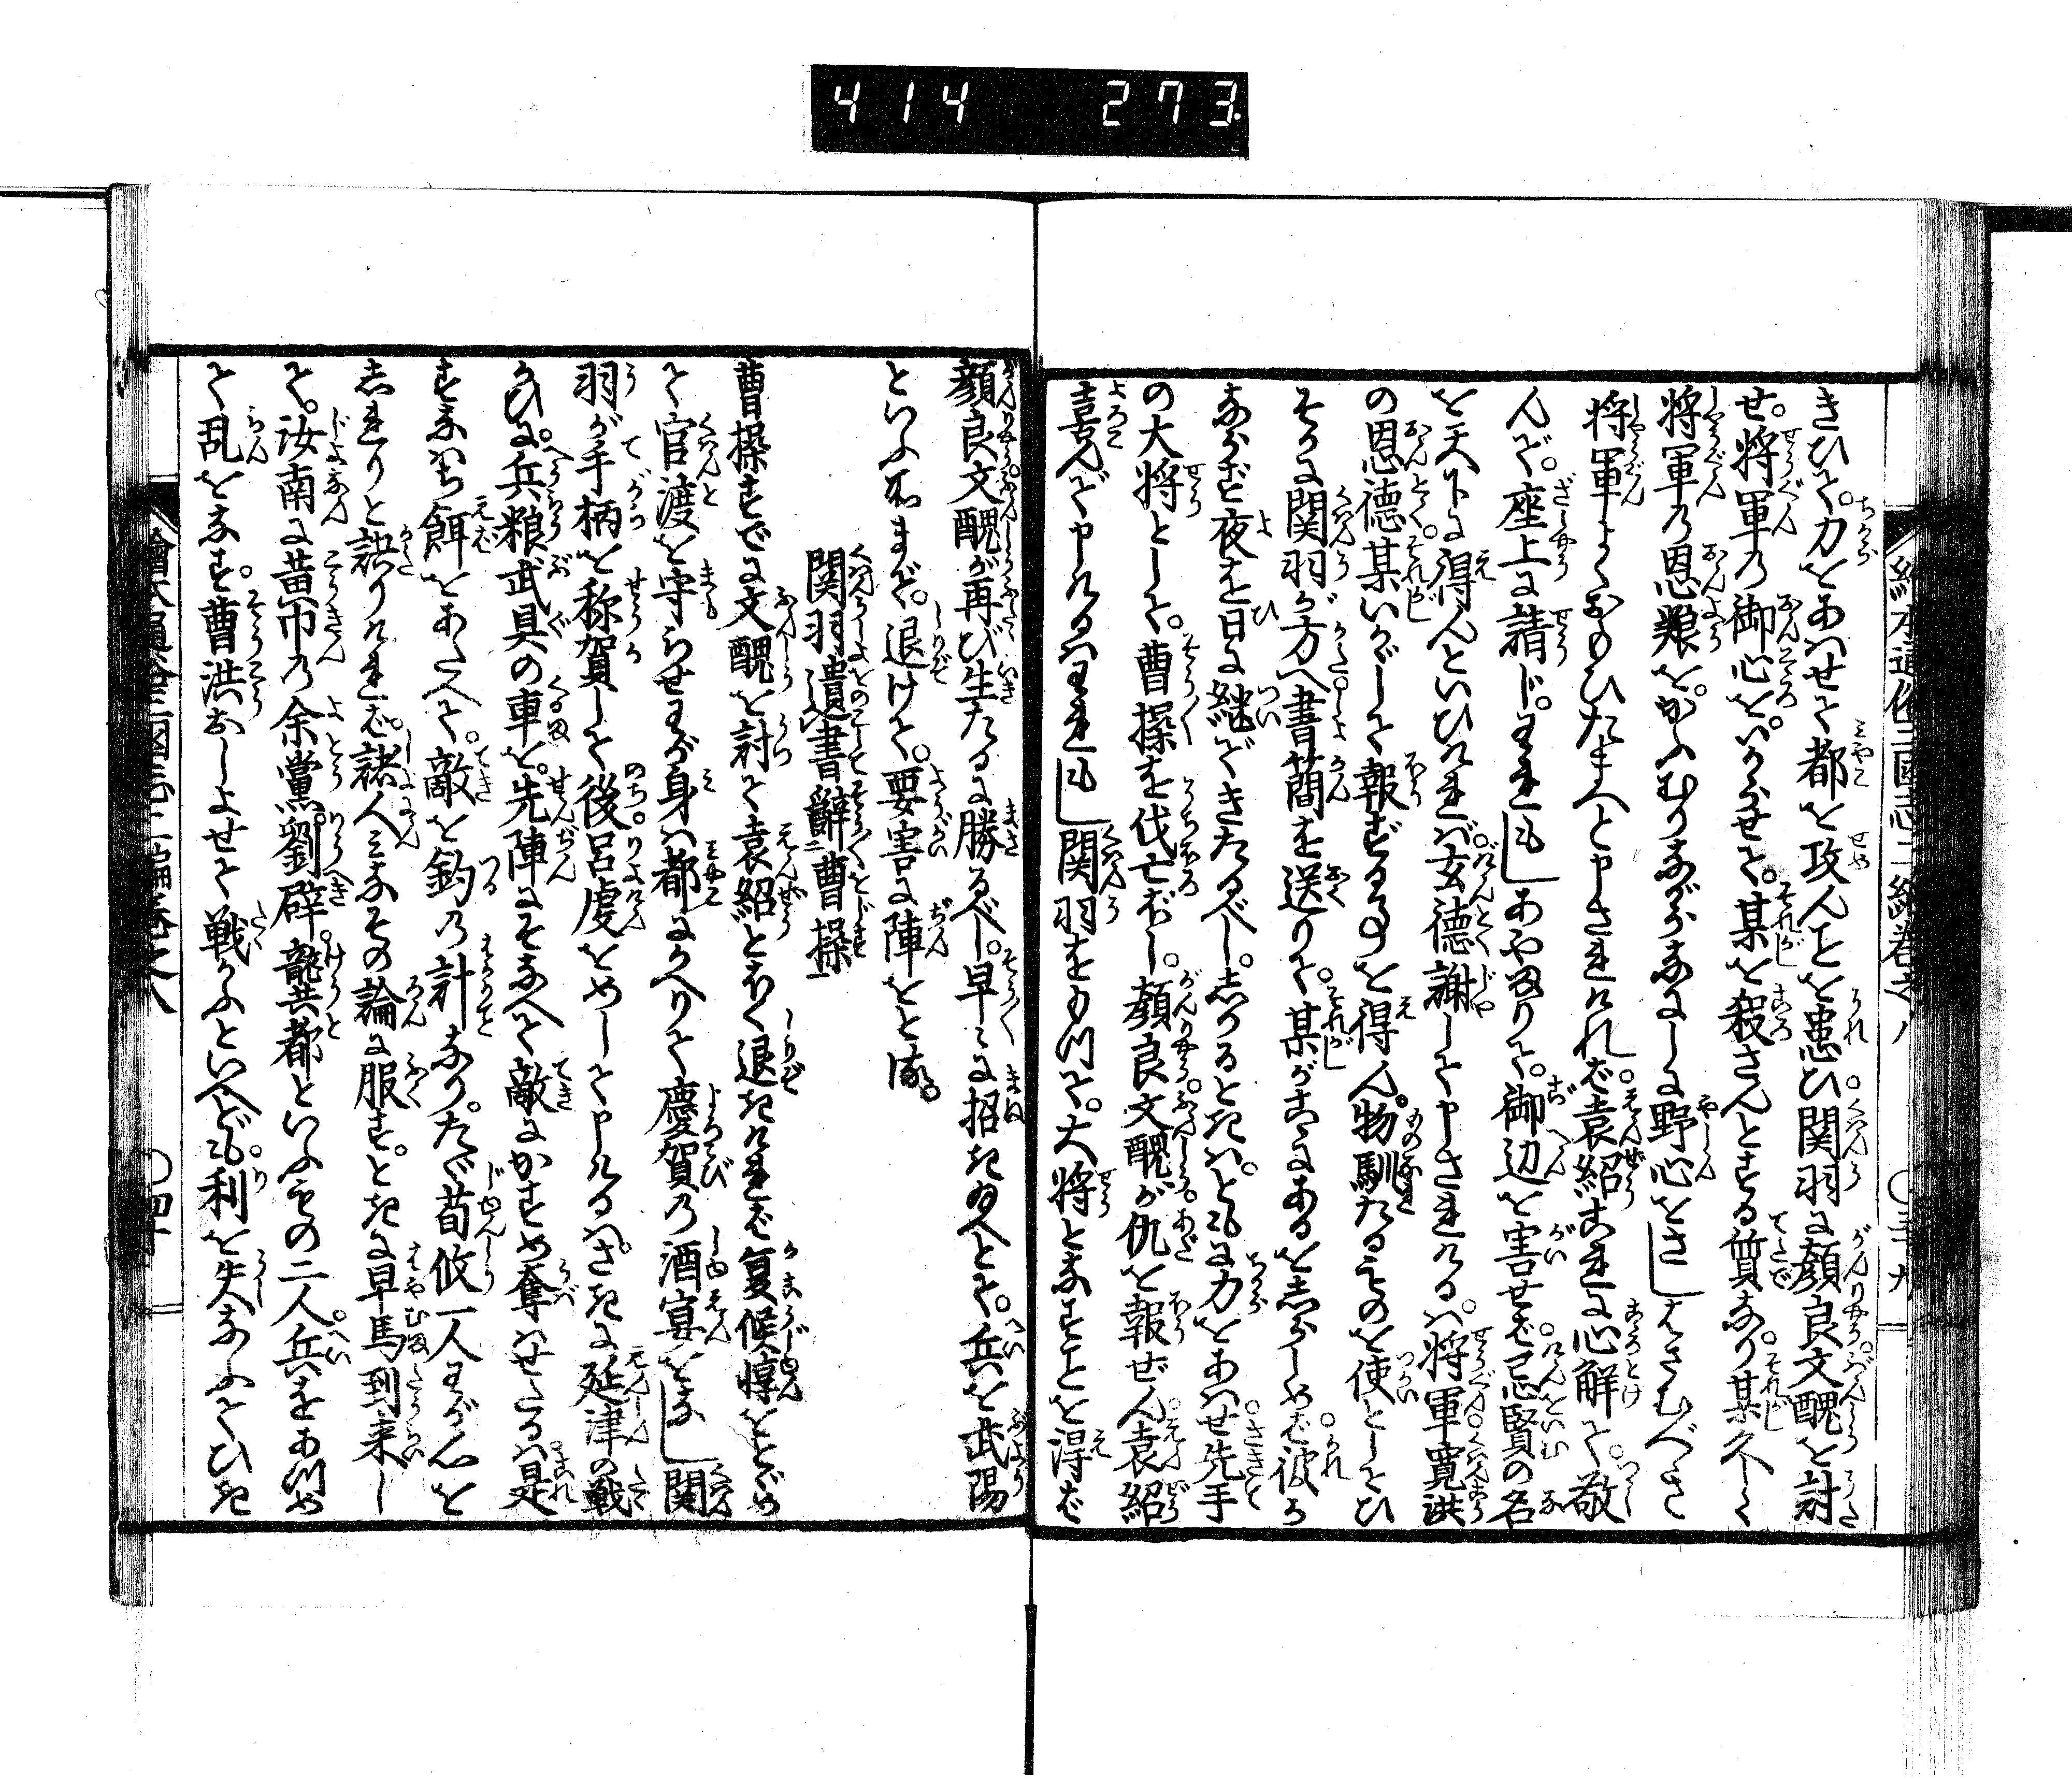 414 273
絵本通俗三国志二編巻之八 〇三十九
きひて。力をあはせて都を攻んことを患ひ関羽に顔良文醜を討
せ。将軍の御心をいからせて。某を殺さんとする質なり某久しく
将軍の恩眷をかふむりながらなにしに野心をさしはさむべき
将軍よくおもひたまへと申されければ。袁紹これに心解て。敬
んで。座上に請じ。われもしあやまりて。御辺を害せば忌賢の名
を天下に得んといひければ。玄徳謝して申されけるは。将軍寛洪
の恩徳某いかゞして報ずることを得ん。物馴たるものを使としてひ
そかに関羽が方へ書簡を送りて。某がこゝにあるをしらしめば彼か
ならず夜を日に継できたるべし。しかるときは。ともに力をあはせ先手
の大将として。曹操を伐亡ぼし。顔良文醜が仇を報ぜん袁紹
喜んで申けるはわれもし関羽をもつて。大将となすことを得ば
顔良文醜が再び生たるに勝るべし。早々に招き給へとて。兵を武陽
といふ所まで。退けて。要害に陣をとる。
関羽遺書辞曹操
曹操すでに文醜を討て袁紹とほく退きければ夏候惇をとゞめ
て官渡を守らせわが身は都にかへりて慶賀の酒宴をなし関
羽が手柄を称賀して後呂虔をめして申けるは。さきに延津の戦
ひに。兵粮武具の車を。先陣にそなへて敵にかすめ奪はせたるは是
すなはち餌をあたへて。敵を釣の計なり。たゞ荀攸一人わが心を
しれりと語りければ。諸人みなその論に服す。ときに早馬到来し
て。汝南に黄巾の余党。劉辟。龔都といふもの二人。兵をあつめ
て乱をなす。曹洪おしよせて戦かふといへども。利を失なふてひき
絵本通俗三国志二編巻之八 〇四十